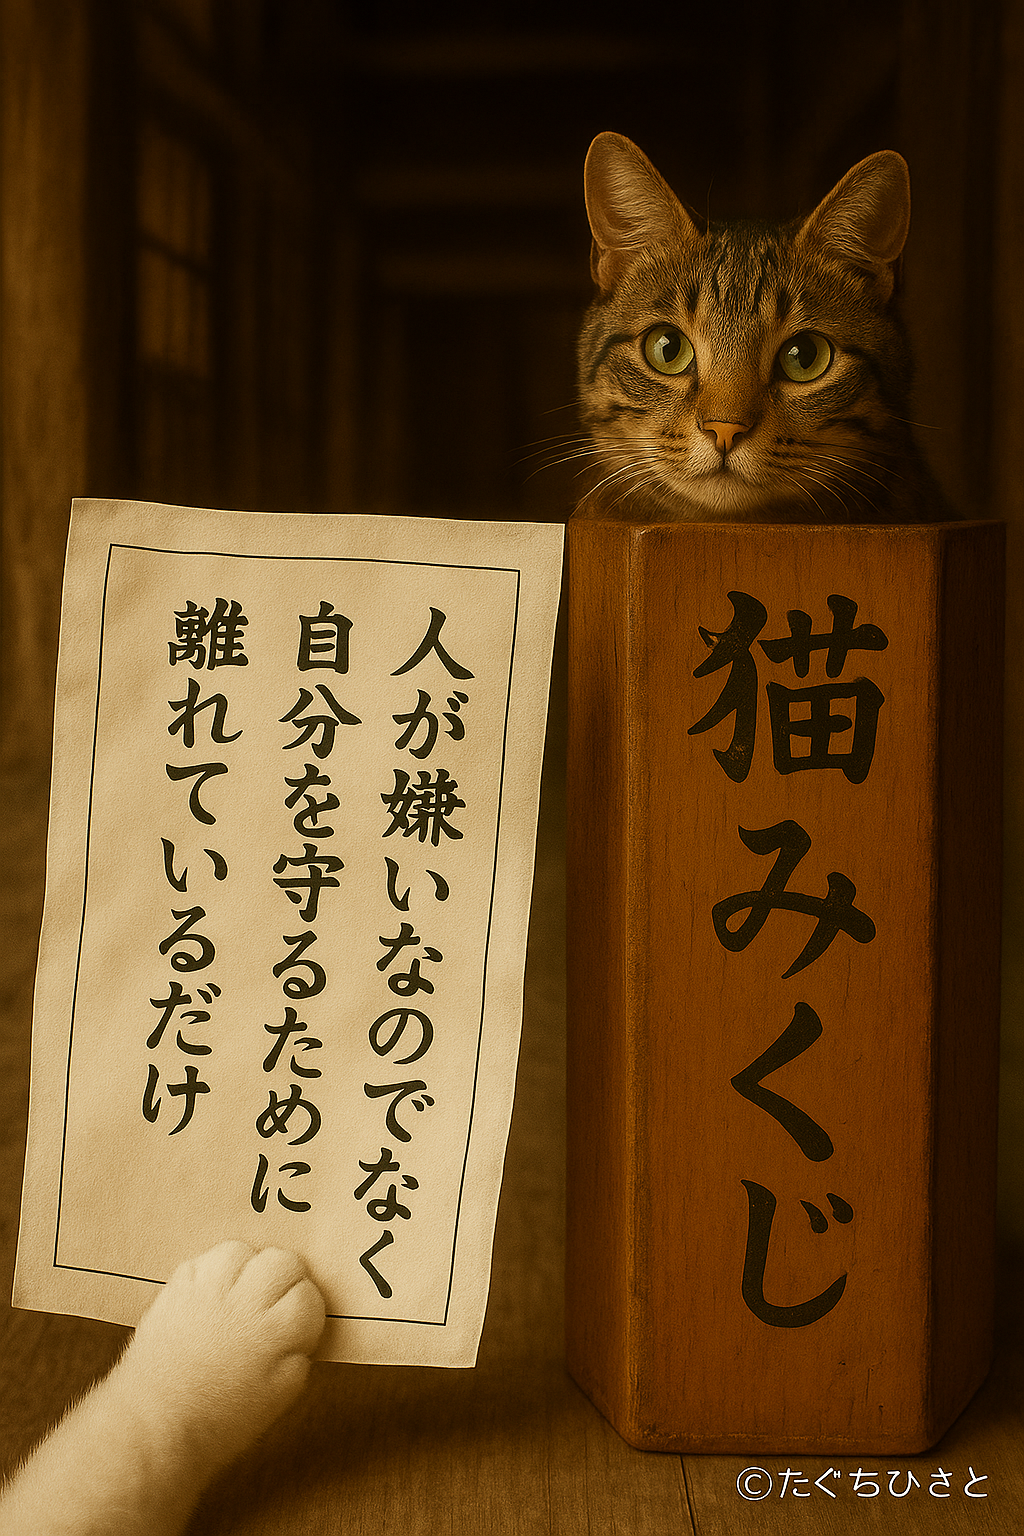 人が嫌いなのでなく
自分を守るために
離れているだけ
猫みくじ
©たぐちひさと